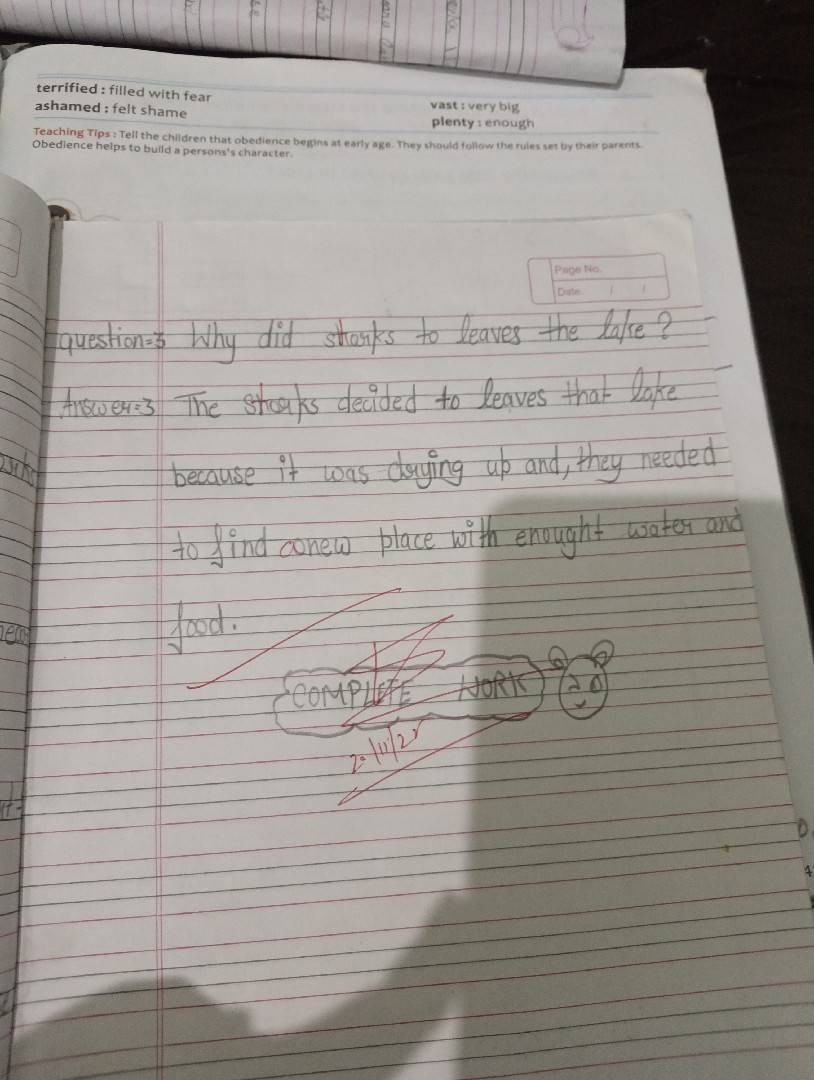 terrified : filled with fear
ashamed : felt shame
vast : very big
plenty : enough
Teaching Tips : Tell the children that obedience begins at early age. They should follow the rules set by their parents.
Obedience helps to build a persons's character.
Page No.
Date / /
question=3 Why did storks to leaves the lake?
Answer=3 The storks decided to leaves that lake
because it was drying up and, they needed
to find a new place with enought water and
food.
COMPLETE WORK
20/11/25